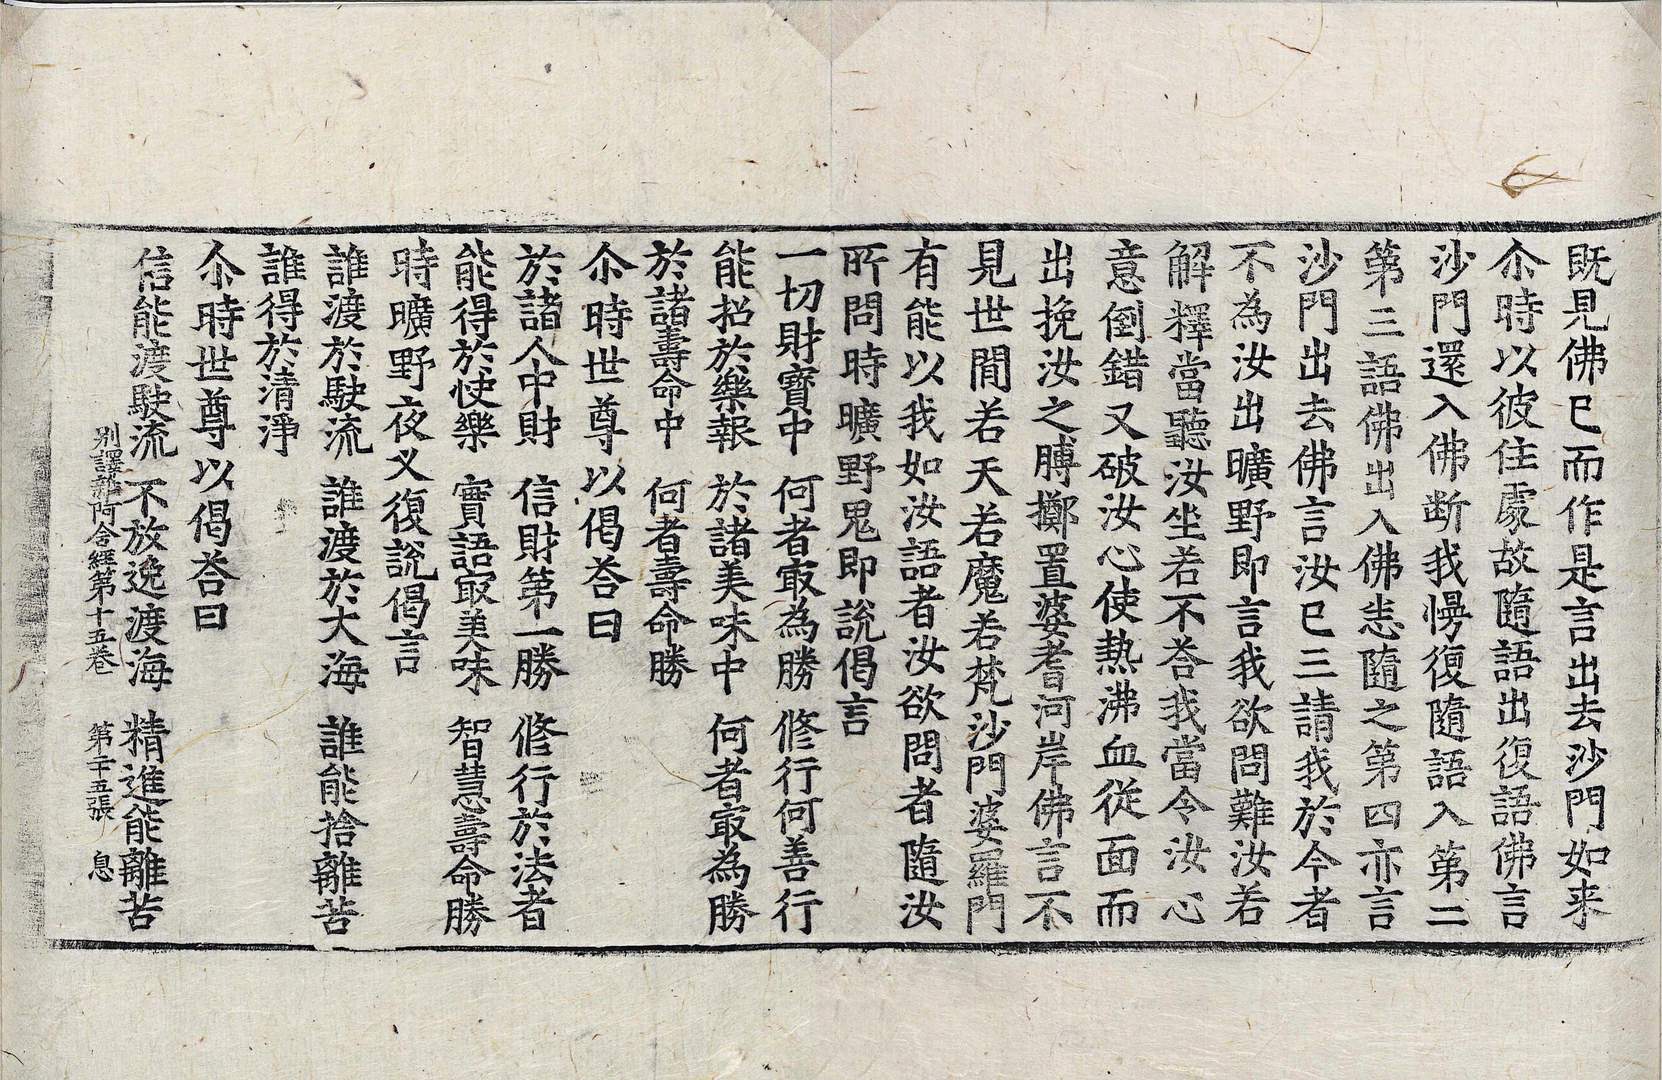 既見佛已而作是言出去沙門如来
尒時以彼住處故隨語出復語佛言
沙門還入佛断我慢復隨語入第二
第三語佛出入佛恚隨之第四亦言
沙門出去佛言汝已三請我於今者
不為汝出曠野即言我欲問難汝若
解釋當聽汝坐若不荅我當令汝心
意倒錯又破汝心使熱沸血從面而
出挽汝之膊擲置婆耆河岸佛言不
見世間若天若魔若梵沙門婆羅門
有能以我如汝語者汝欲問者隨汝
所問時曠野鬼即說偈言
一切財寶中　何者㝡為勝　修行何善行
能招於樂報　於諸美味中　何者㝡為勝
於諸壽命中　何者壽命勝
尒時世尊以偈荅曰
於諸人中財　信財第一勝　修行於法者
能得於快樂　實語㝡美味　智慧壽命勝
時曠野夜叉復說偈言
誰渡於駛流　誰渡於大海　誰能捨離苦
誰得於清淨
尒時世尊以偈荅曰
信能渡駛流　不放逸渡海　精進能離苦
別譯雜阿含經第十五巻　第二十五張　息